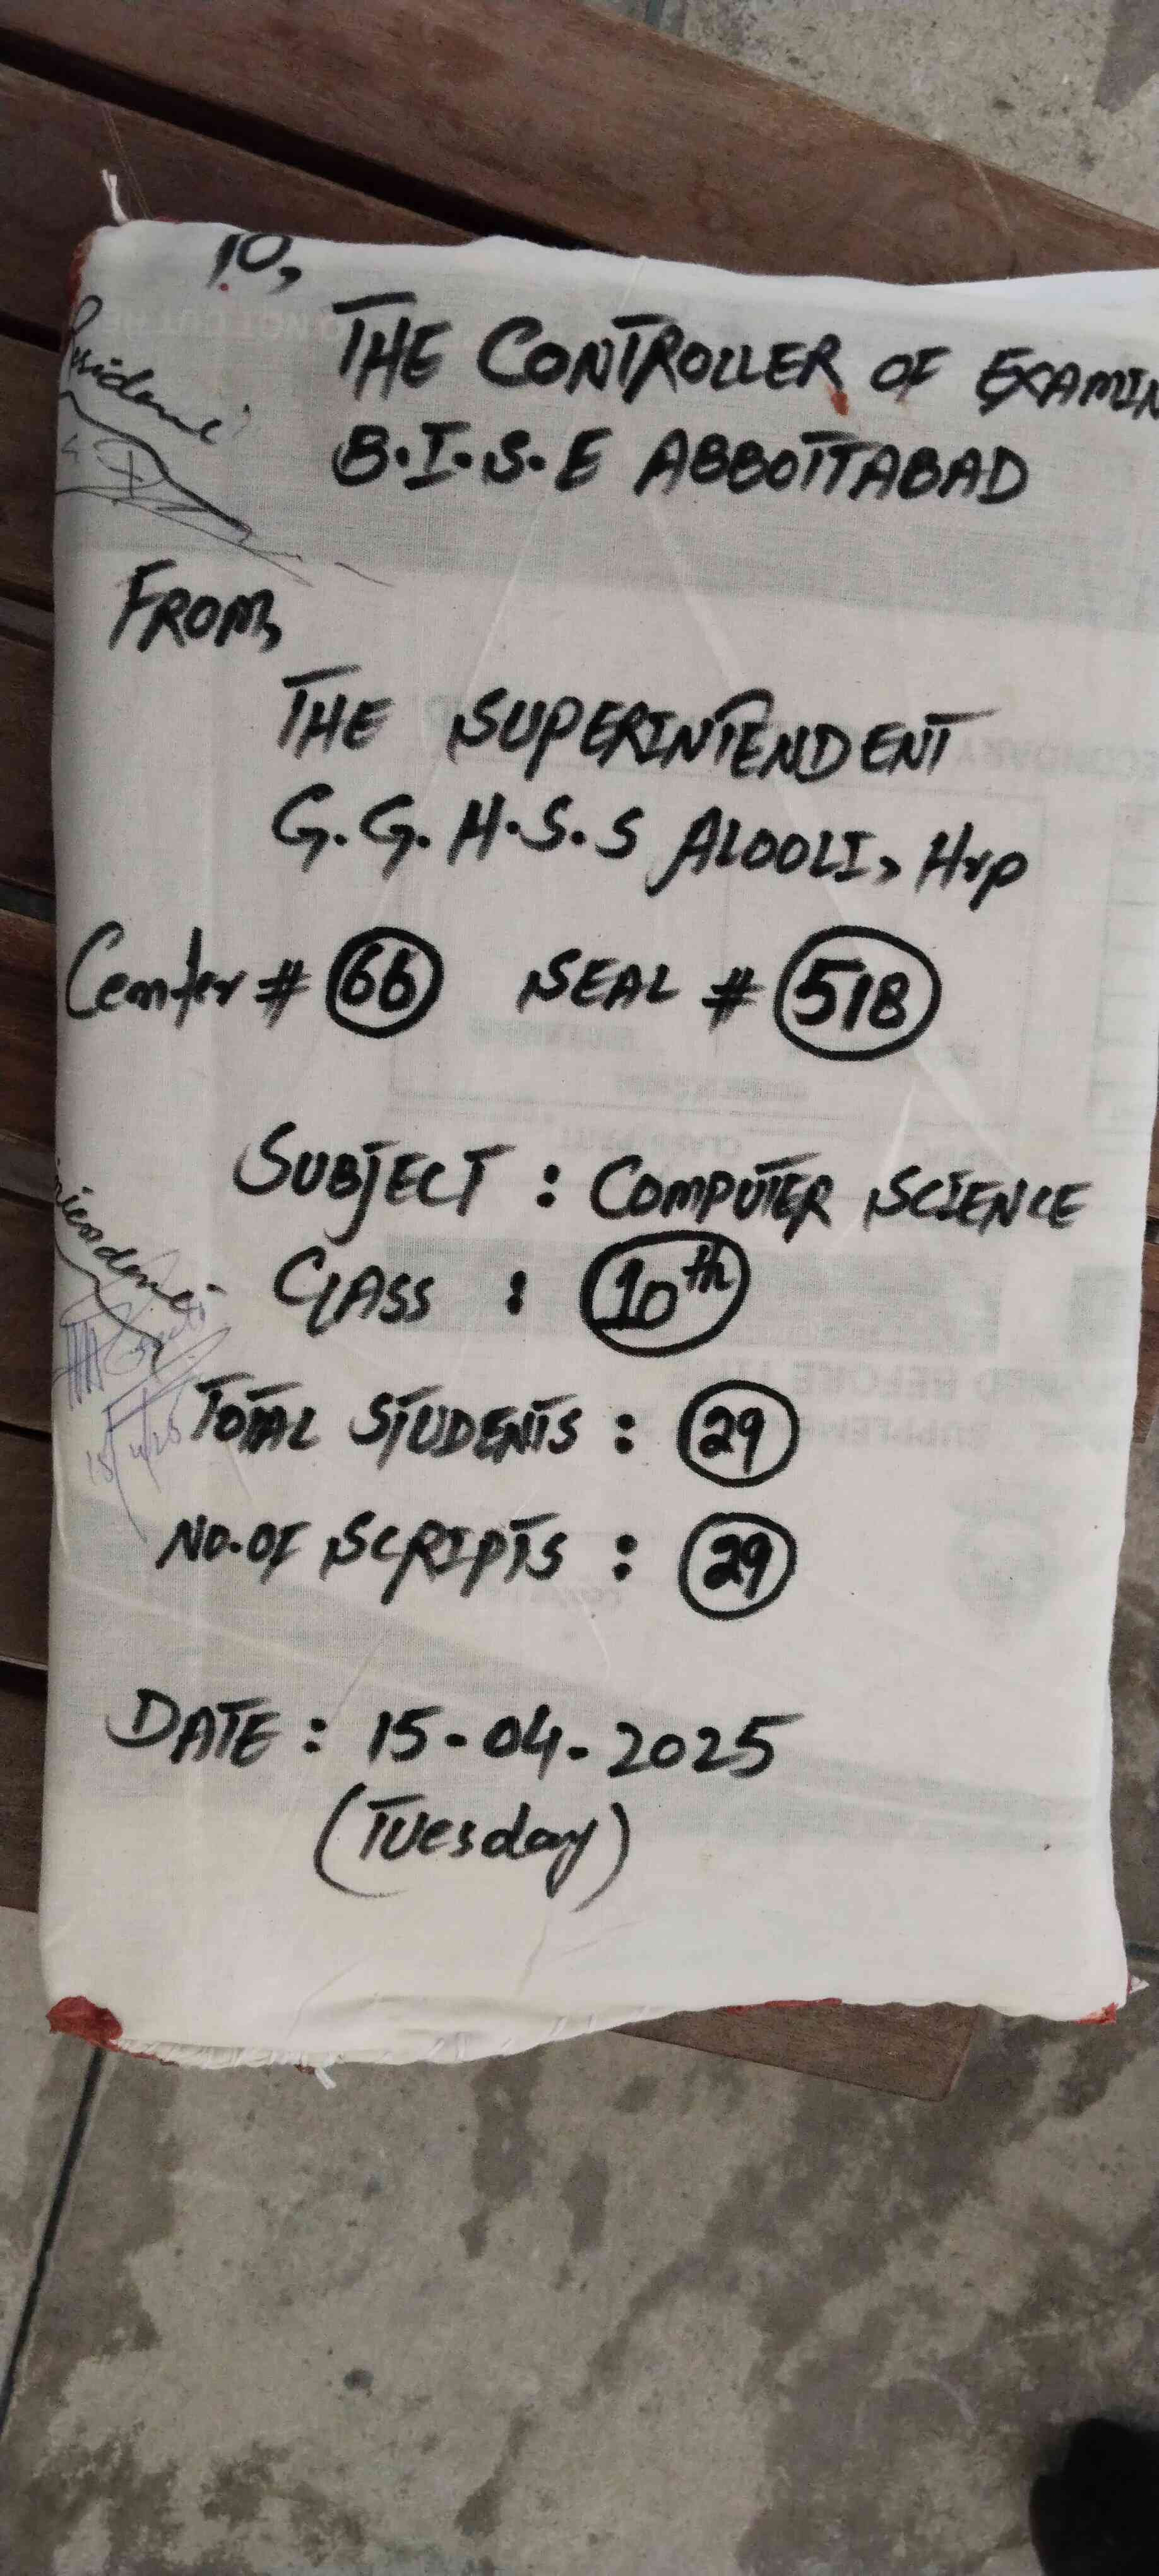 TO,
THE CONTROLLER OF EXAMIN
B.I.S.E ABBOTTABAD
FROM,
THE SUPERINTENDENT
G.G.H.S.S ALOOLI, Hrp
Center # 66 SEAL # 518
SUBJECT : COMPUTER SCIENCE
CLASS : 10th
TOTAL STUDENTS : 29
NO. OF SCRIPTS : 29
DATE : 15-04-2025
(Tuesday)
15/4/25